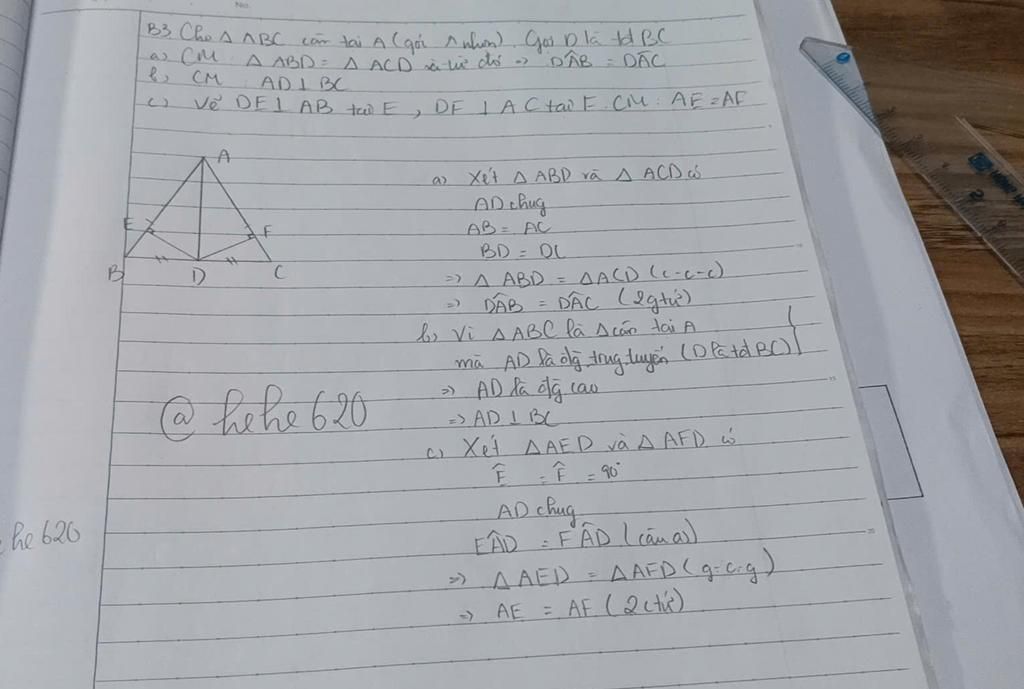 No.
B3 Cho Δ ABC cân tại A (góc A nhọn). Gọi D là td BC
a) CM Δ ABD = Δ ACD và từ đó => DÂB = DÂC
b) CM AD ⊥ BC
c) Vẽ DE ⊥ AB tại E, DF ⊥ AC tại F. CM: AE = AF
A
E
F
B
D
C
a) Xét Δ ABD và Δ ACD có
AD chug
AB = AC
BD = DC
=> Δ ABD = Δ ACD (c-c-c)
=> DÂB = DÂC (2g tứ)
b) Vì Δ ABC là Δ cân tại A
mà AD là đg trug tuyến (D là td BC)
=> AD là đg cao
=> AD ⊥ BC
@hehe620
c) Xét Δ AED và Δ AFD có
Ê = F̂ = 90°
AD chug
EÂD = FÂD (câu a)
=> Δ AED = Δ AFD (g-c-g)
=> AE = AF (2c tứ)
he620